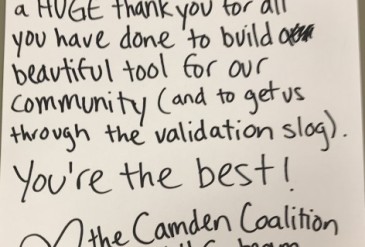 a HUGE thank you for all
you have done to build a
beautiful tool for our
community (and to get us
through the validation slog).
You're the best!
the Camden Coalition
team